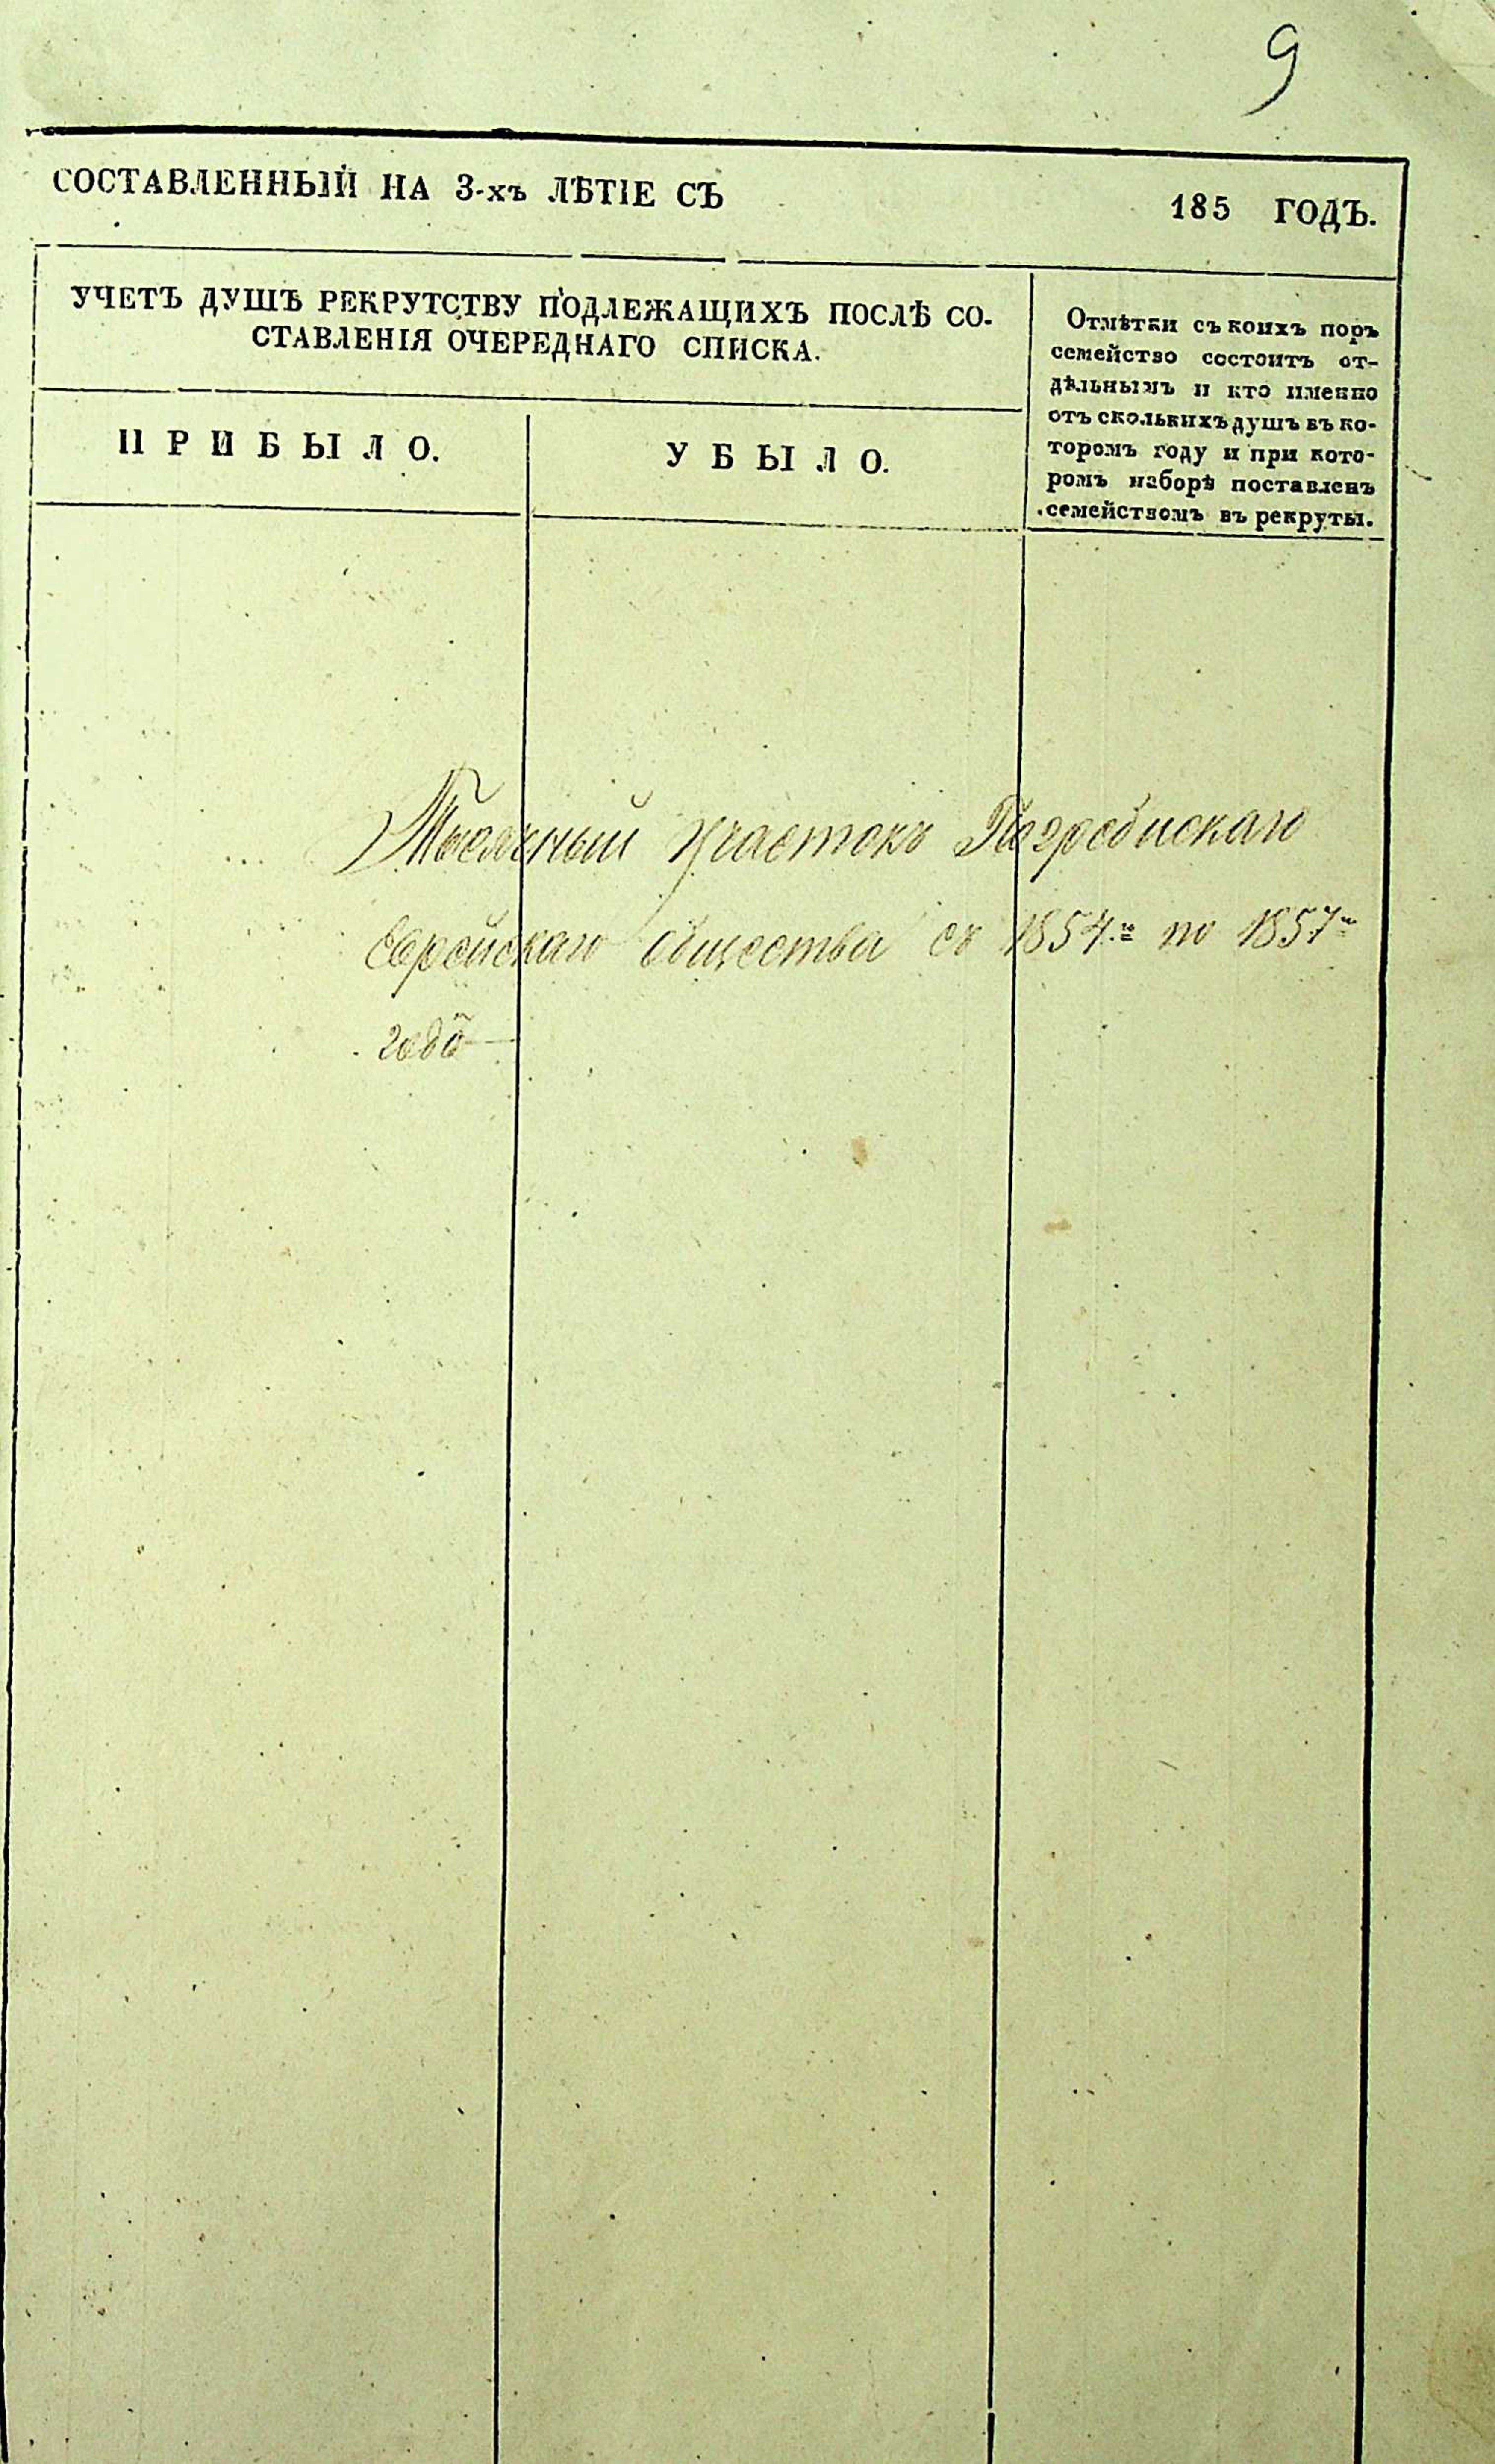 9
СОСТАВЛЕННЫЙ НА 3-хъ ЛѢТІЕ СЪ 185 ГОДЪ.
УЧЕТЪ ДУШЪ РЕКРУТСТВУ ПОДЛЕЖАЩИХЪ ПОСЛѢ СО-
СТАВЛЕНІЯ ОЧЕРЕДНАГО СПИСКА.
Отмѣтки съ коихъ поръ
семейство состоитъ от-
дѣльнымъ и кто именно
отъ сколькихъ душъ въ ко-
торомъ году и при кото-
ромъ наборѣ поставленъ
семействомъ въ рекруты.
ПРИБЫЛО.
УБЫЛО.
Тысячный участокъ Погребискаго
Еврейскаго Общества съ 1854.го по 1857го
годъ